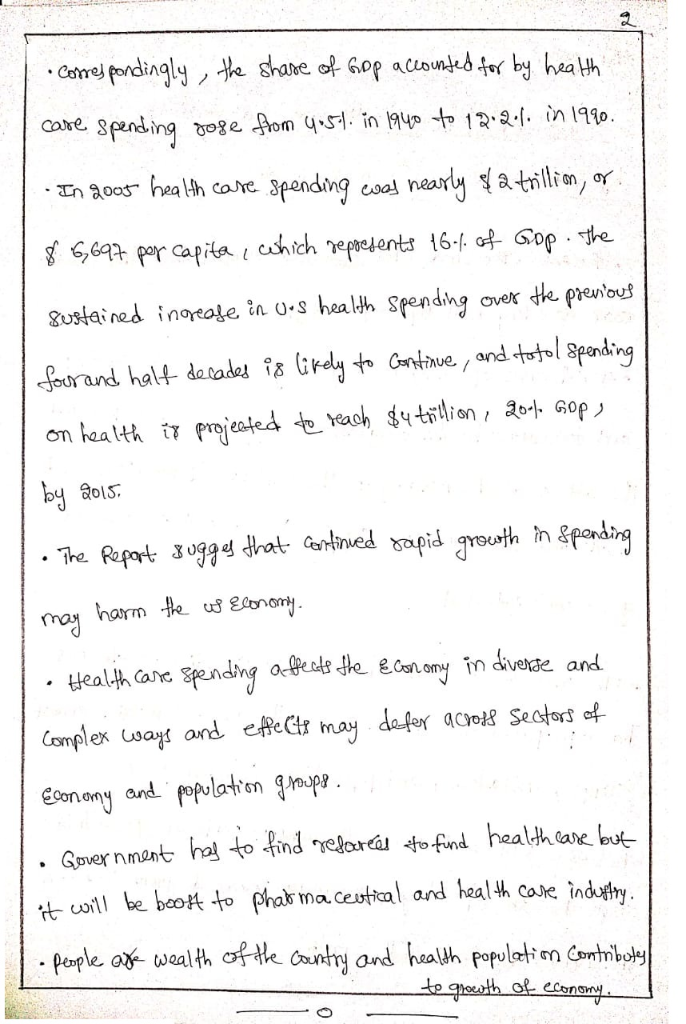 2
• correspondingly, the share of GDP accounted for by health
care spending rose from 4.5%. in 1940 to 12.2%. in 1990.
• In 2005 health care spending was nearly $ 2 trillion, or
$ 6,697 per capita, which represents 16% of GDP. The
sustained increase in U.S health spending over the previous
four and half decades is likely to Continue, and totol spending
on health is projected to reach $4 trillion, 20% GDP,
by 2015.
• The Report sugges that continued rapid growth in spending
may harm the us Economy.
• Health Care spending affects the Economy in diverse and
Complex ways and effects may defer across sectors of
Economy and population groups.
• Government has to find resources to fund healthcare but
it will be boost to pharmaceutical and health care industry.
• People are wealth of the country and health population Contributes
to growth of economy.